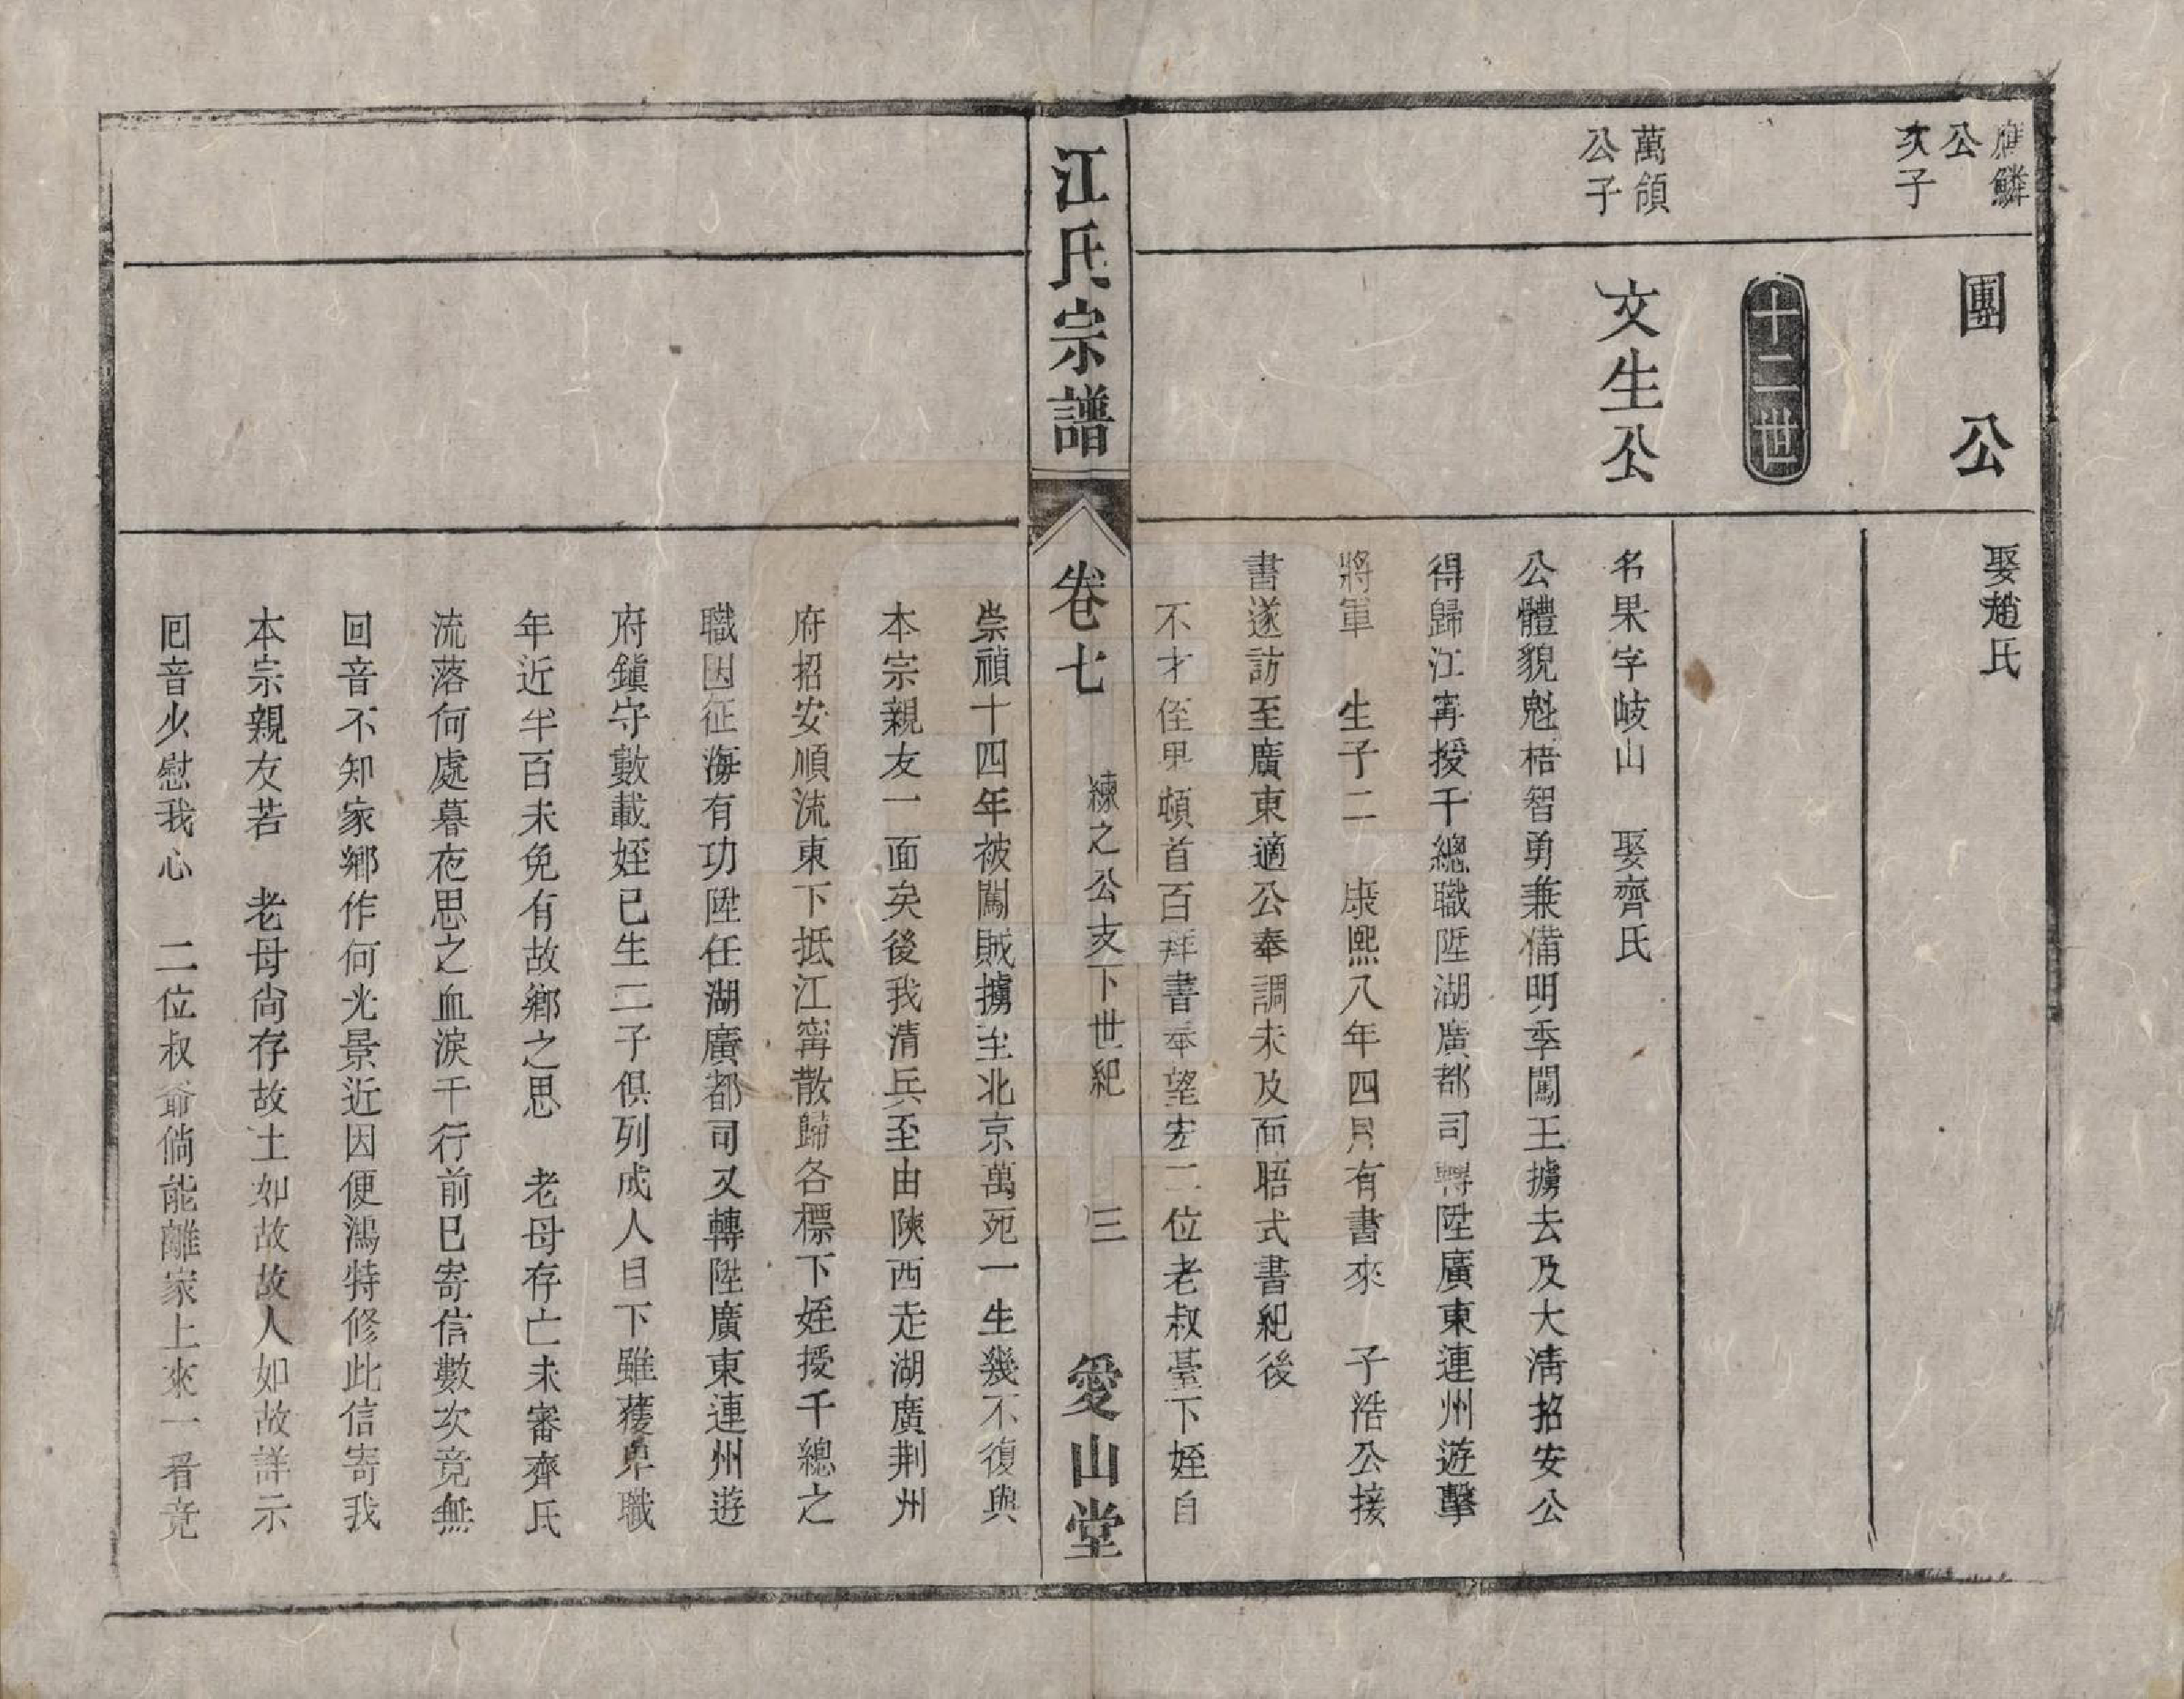 應鱗
公
次子
團公
娶趙氏
十二世
萬頎
公子
文生公
名果字岐山 娶齊氏
公體貌魁梧智勇兼備明季闖王擄去及大清招安公
得歸江寗授千總職陞湖廣都司轉陞廣東連州遊擊
將軍 生子二 康熙八年四月有書來 子浩公接
書遂訪至廣東適公奉調未及面晤式書紀後
不才侄果頓首百拜書奉望宏二位老叔臺下姪自
江氏宗譜
卷七
練之公支下世紀
三
愛山堂
崇禎十四年被闖賊擄至北京萬死一生幾不復與
本宗親友一面矣後我清兵至由陝西走湖廣荆州
府招安順流東下抵江寗散歸各標下姪授千總之
職因征海有功陞任湖廣都司又轉陞廣東連州遊
府鎮守數載姪已生二子俱列成人目下雖獲卑職
年近半百未免有故鄉之思 老母存亡未審齊氏
流落何處暮夜思之血淚千行前已寄信數次竟無
回音不知家鄉作何光景近因便鴻特修此信寄我
本宗親友若 老母尙存故土如故故人如故詳示
囘音少慰我心 二位叔爺倘能離家上來一看竟